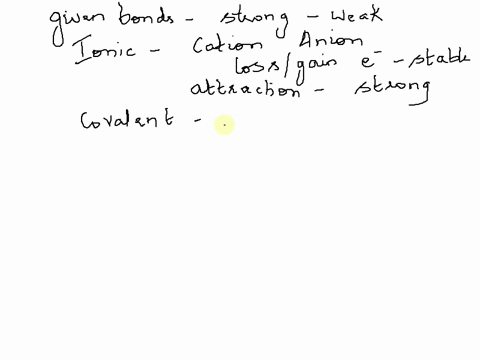 given bonds - strong - weak
Ionic - Cation Anion
loss/gain e⁻ - stable
attraction - strong
Covalant -